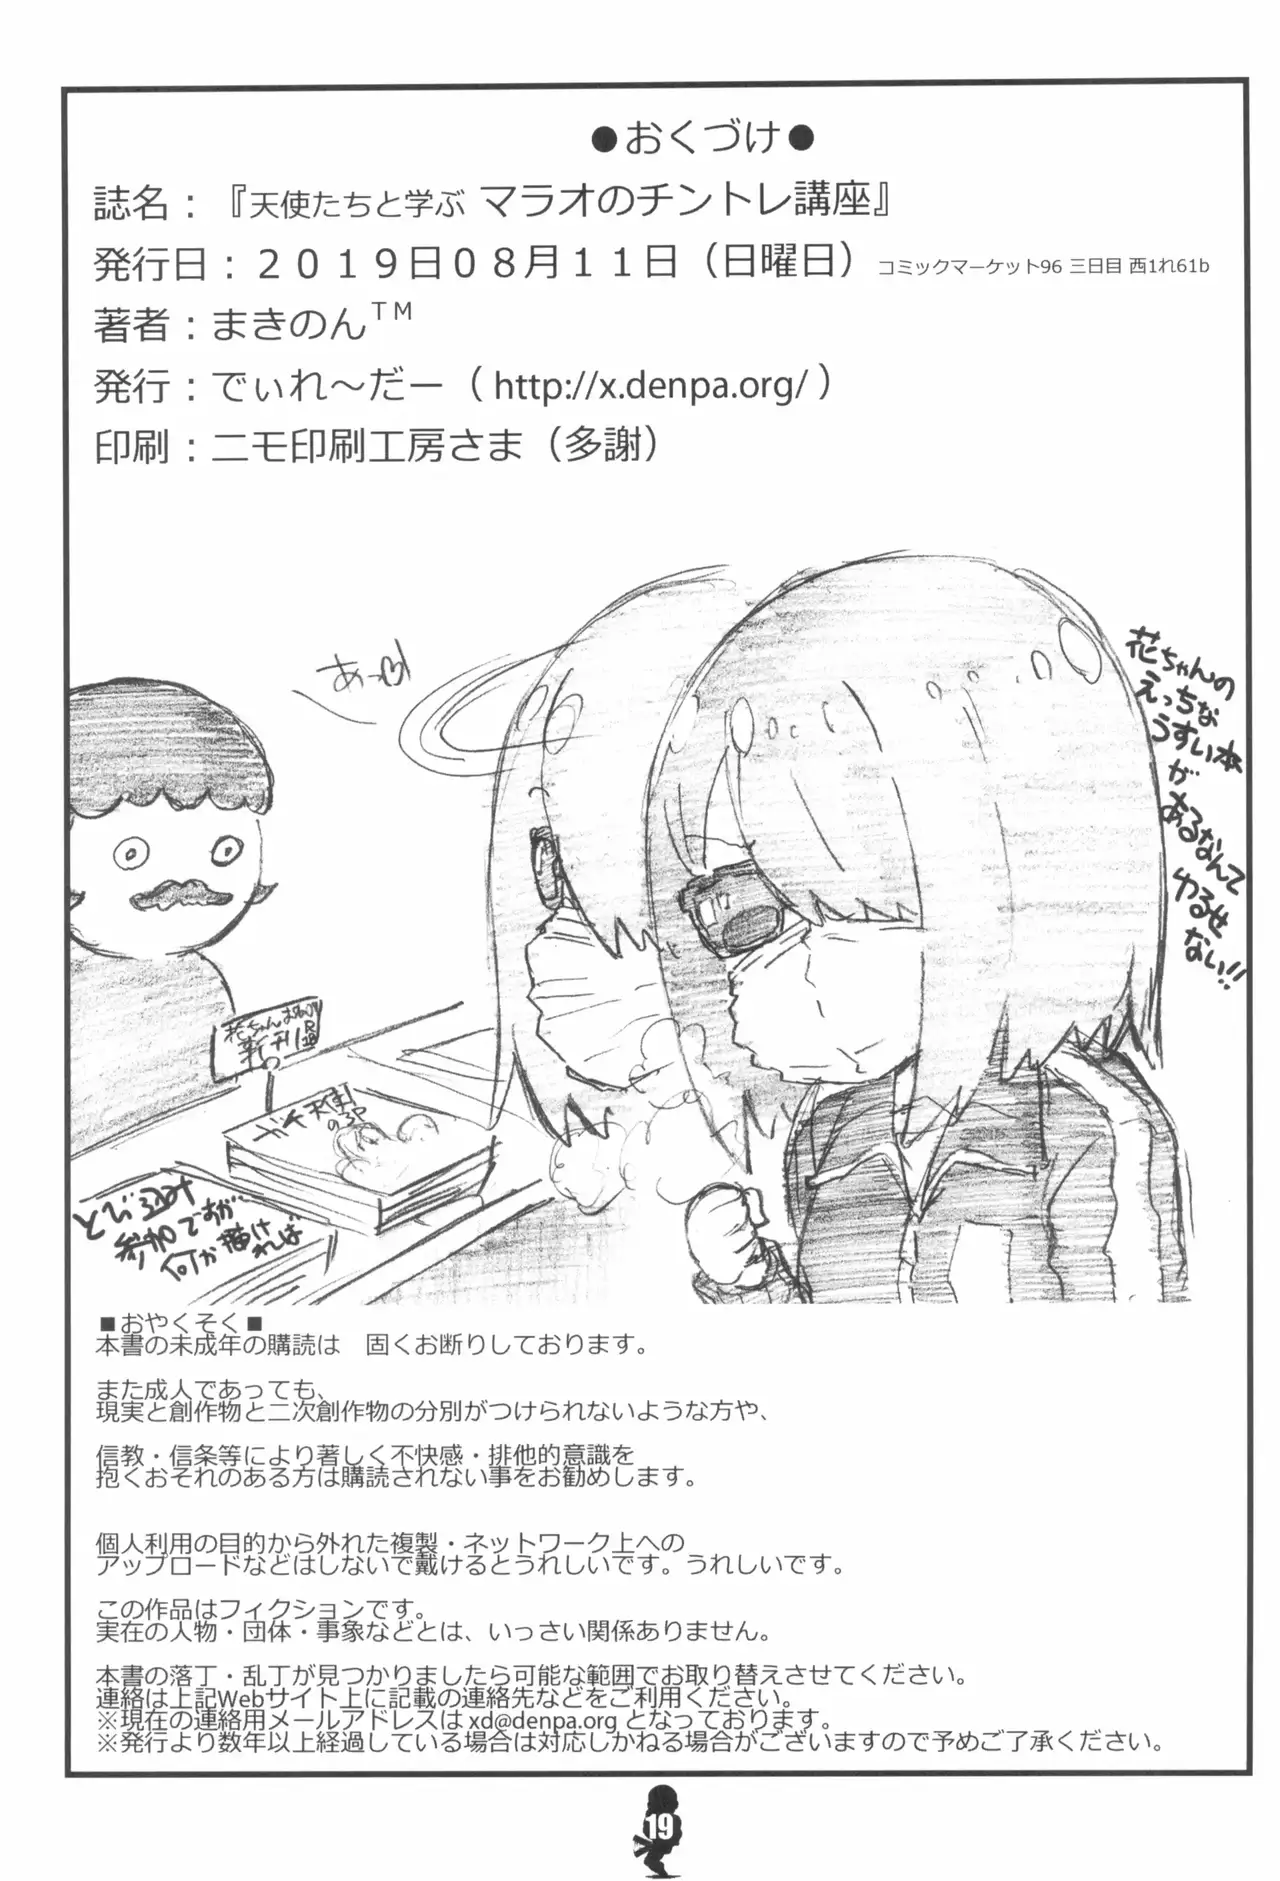 ●おくづけ●
誌名：『天使たちと学ぶ マラオのチントレ講座』
発行日：２０１９日０８月１１日（日曜日）コミックマーケット96 三日目 西1れ61b
著者：まきのん™
発行：でぃれ～だー（http://x.denpa.org/）
印刷：ニモ印刷工房さま（多謝）
花ちゃんの
えっちな
うすい本
が
あるなんて
ゆるせ
ない!!
花ちゃん
新刊
とび込み
参加ですが…
何か描け
れば
■おやくそく■
本書の未成年の購読は　固くお断りしております。
また成人であっても、
現実と創作物と二次創作物の分別がつけられないような方や、
信教・信条等により著しく不快感・排他的意識を
抱くおそれのある方は購読されない事をお勧めします。
個人利用の目的から外れた複製・ネットワーク上への
アップロードなどはしないで戴けるとうれしいです。うれしいです。
この作品はフィクションです。
実在の人物・団体・事象などとは、いっさい関係ありません。
本書の落丁・乱丁が見つかりましたら可能な範囲でお取り替えさせてください。
連絡は上記Webサイト上に記載の連絡先などをご利用ください。
※現在の連絡用メールアドレスは xd@denpa.org となっております。
※発行より数年以上経過している場合は対応しかねる場合がございますので予めご了承ください。
19